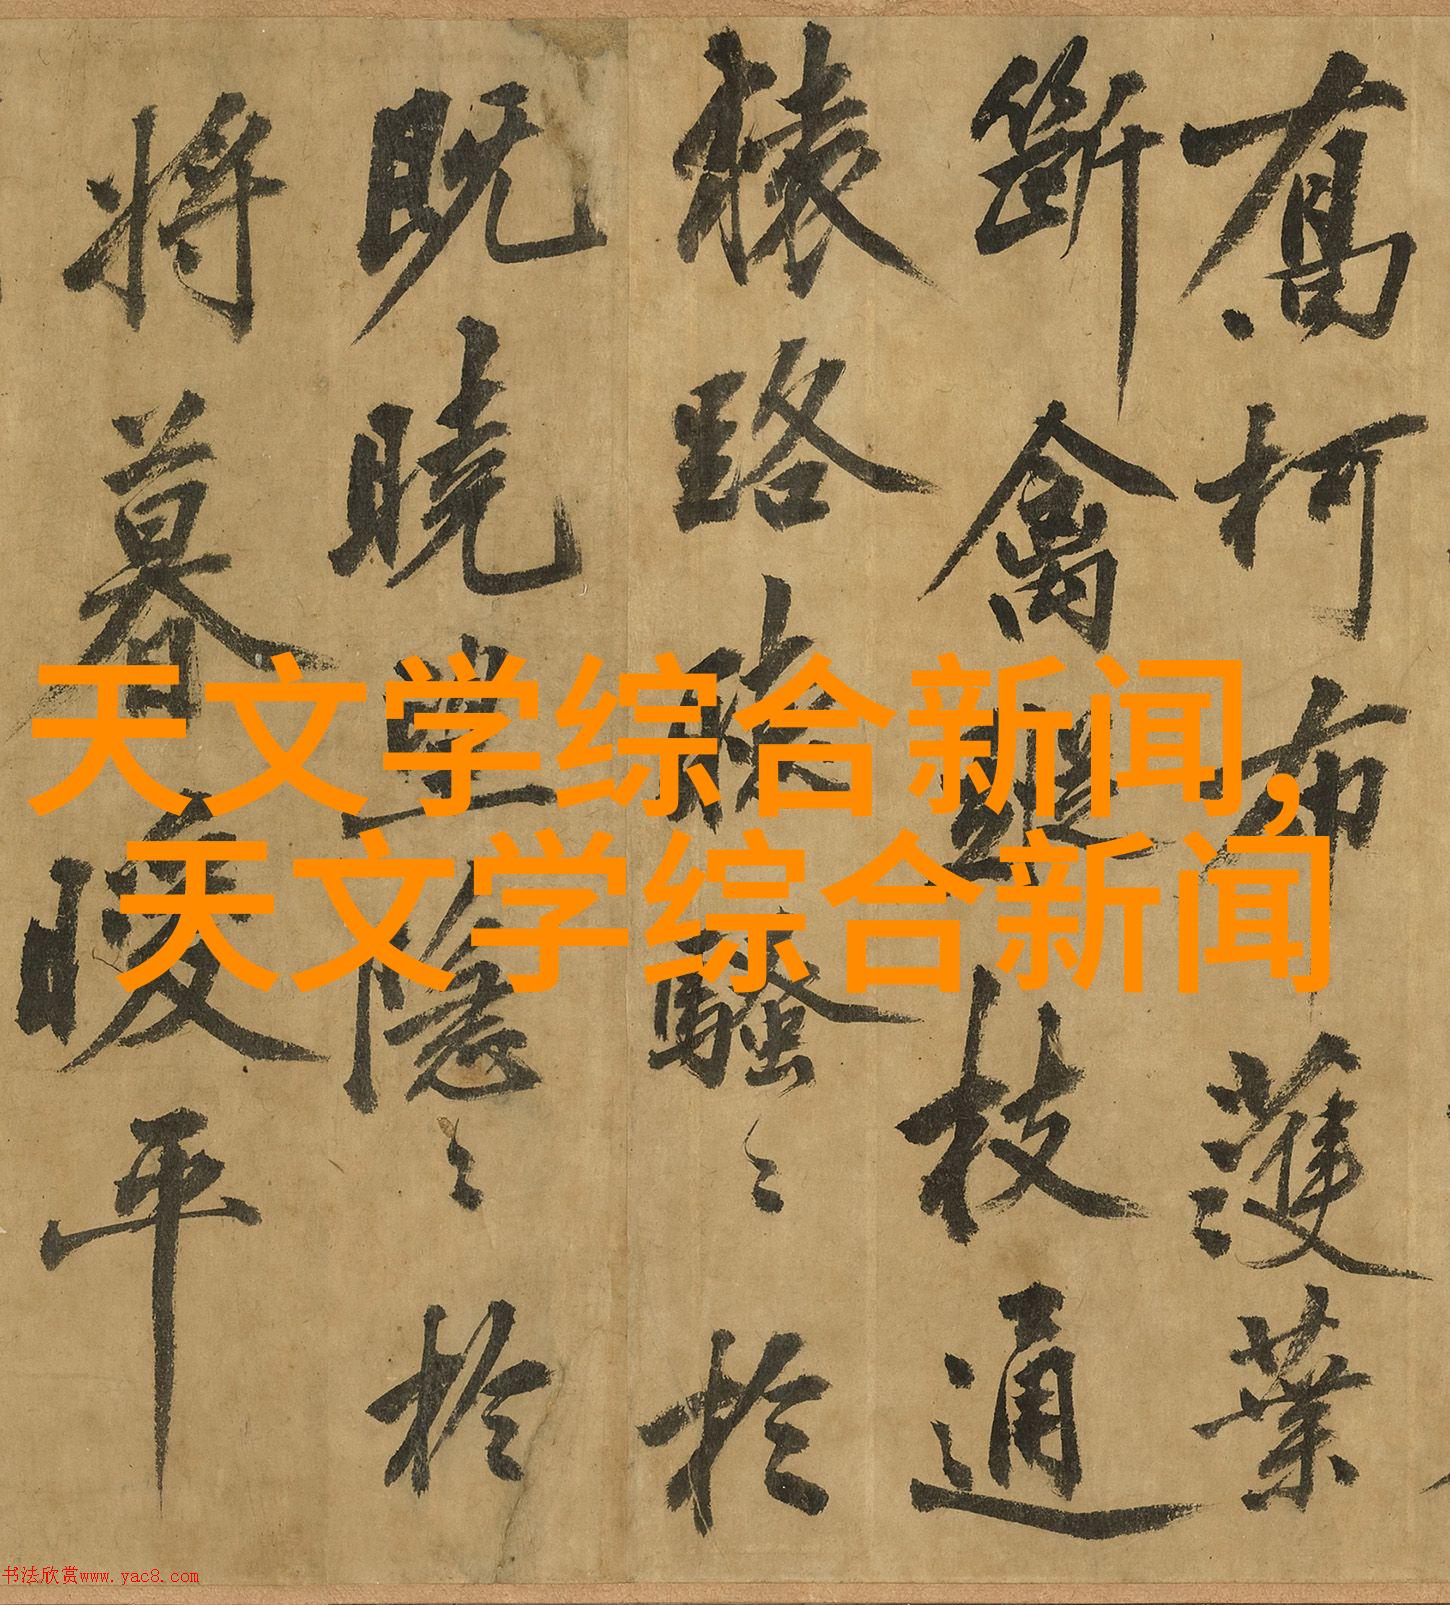 喬柯布濩葉
斷禽枝通
猿路騷〻於
既曉望隱〻於
將暮曖平
天文学综合新闻,
天文学综合新闻
书法欣赏www.yac8.com